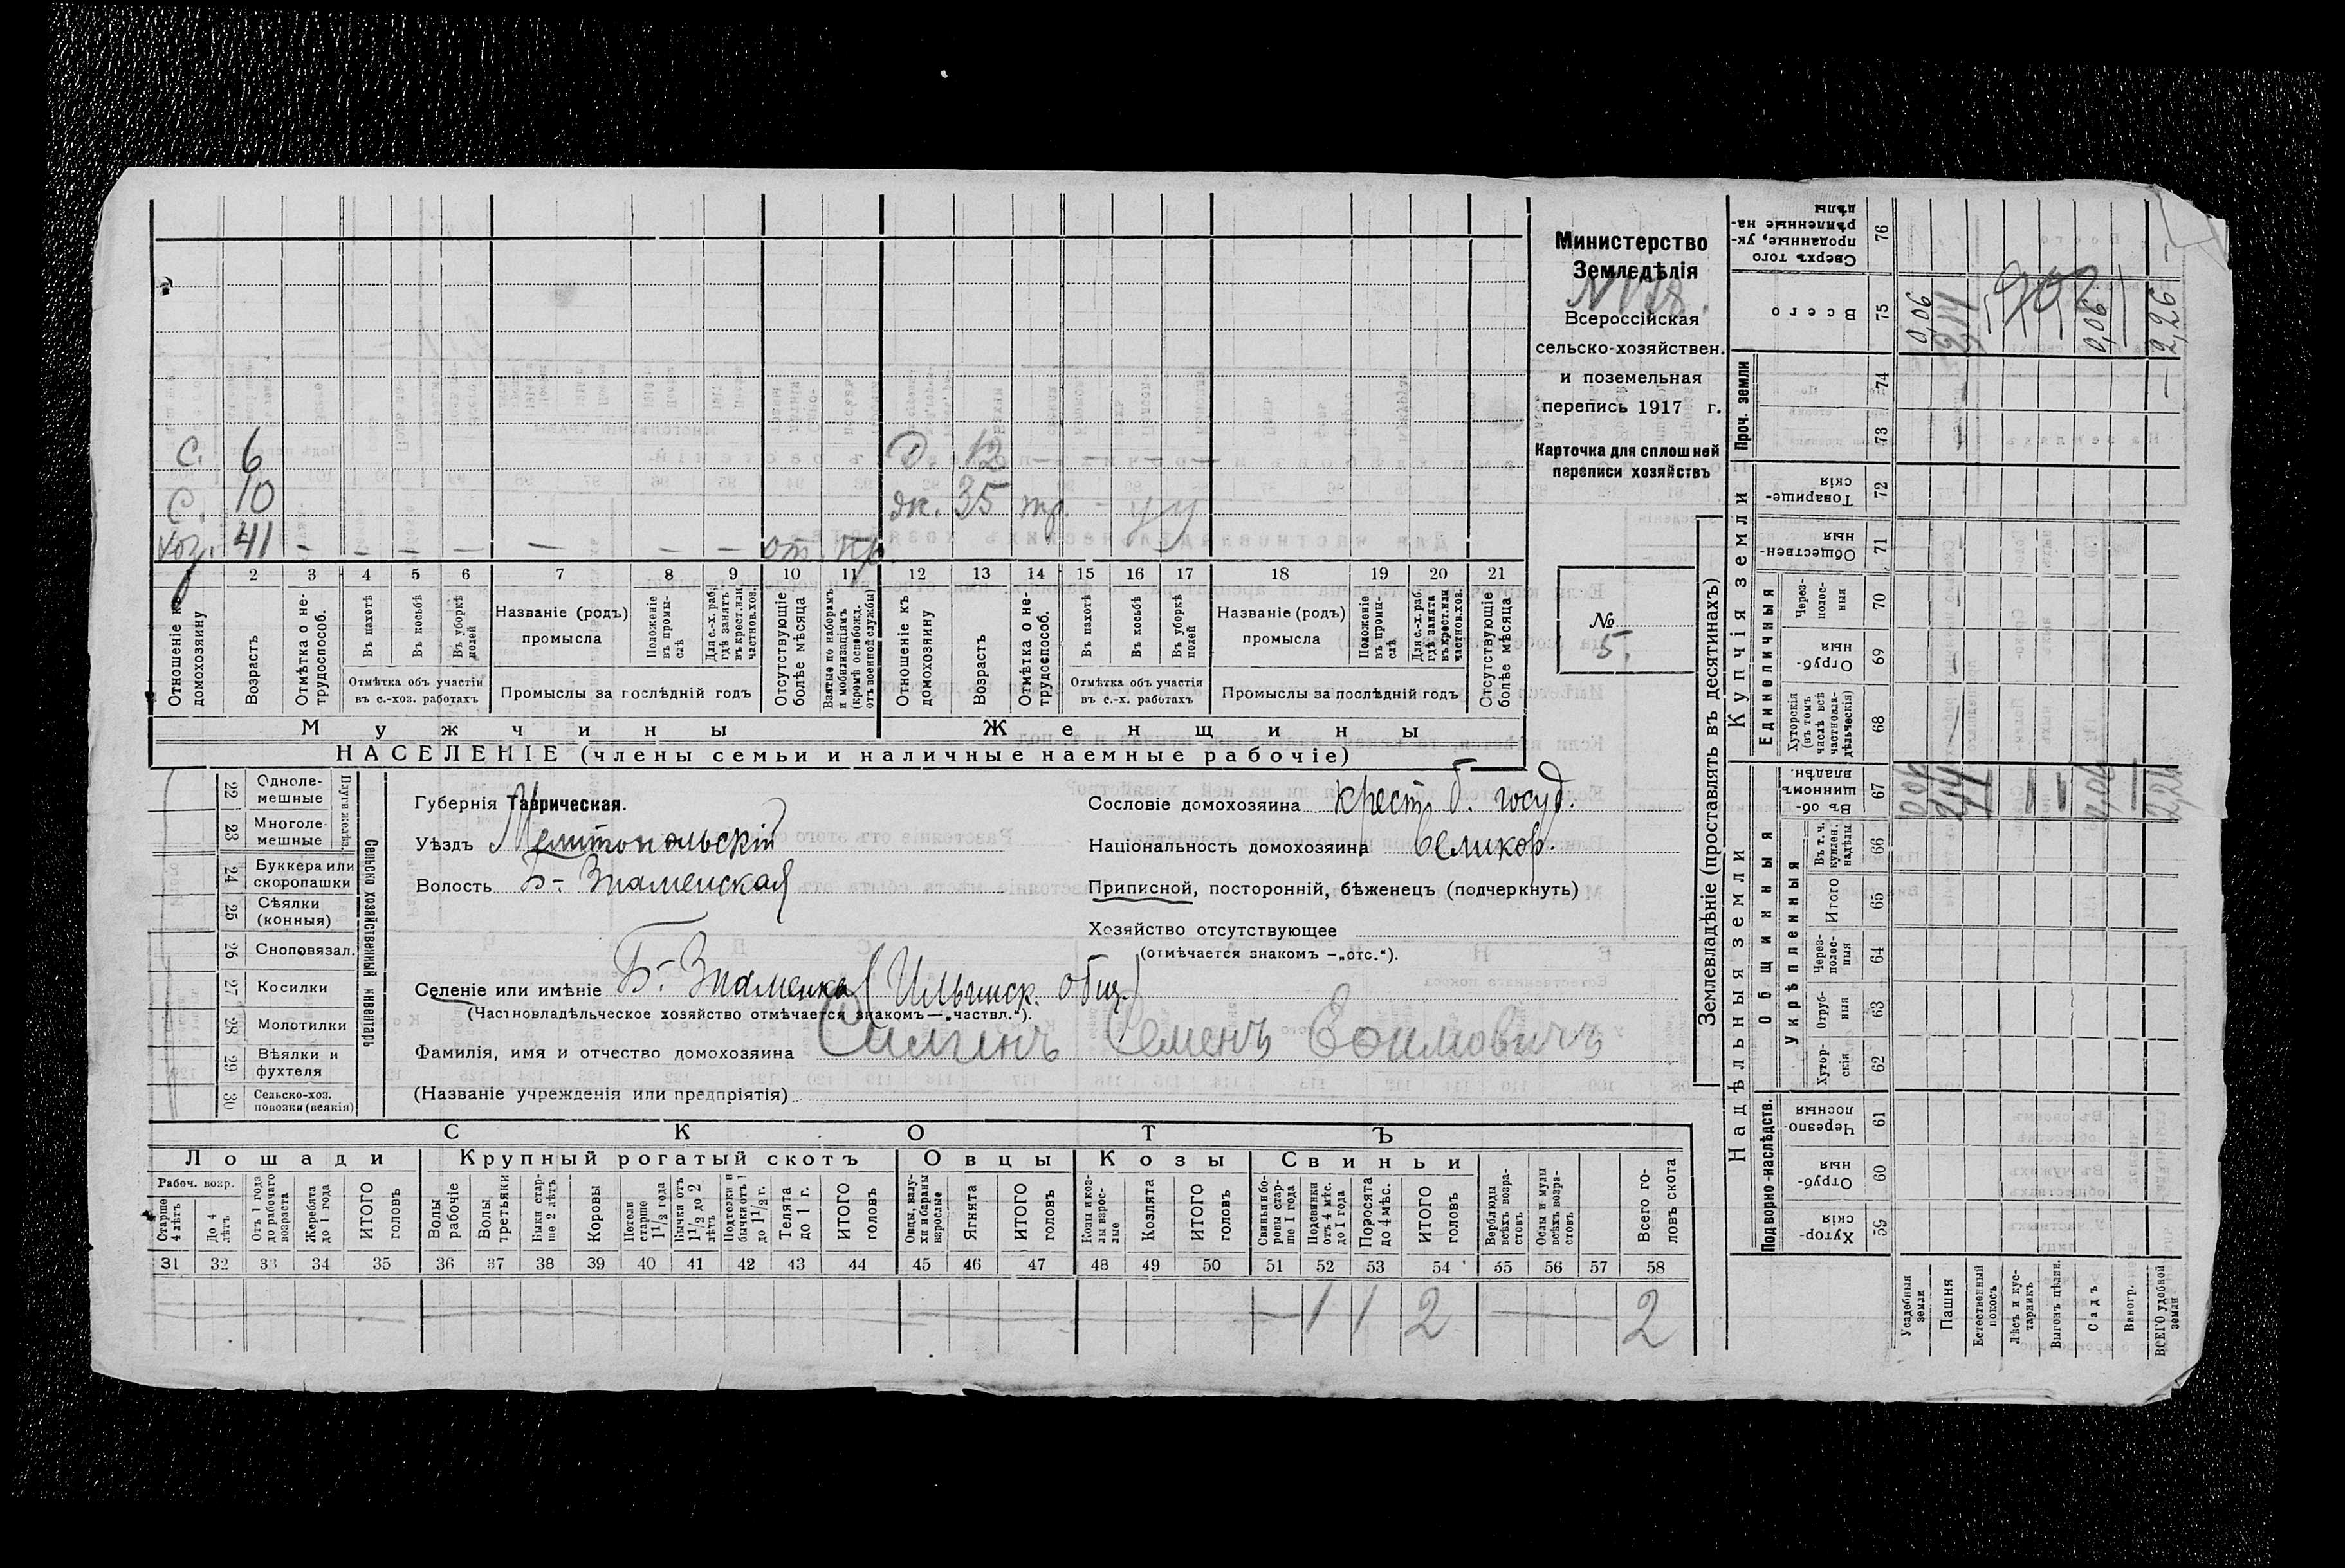 Министерство
Земледѣлія
Всероссійская
сельско-хозяйствен.
и поземельная
перепись 1917 г.
Карточка для сплошной
переписи хозяйствъ
№
5.
С. 6 Д 12
С. 10 дк. 35 тр. - у у
хоз. 41 — — — — — — — от.
1 2 3 4 5 6 7 8 9 10 11 12 13 14 15 16 17 18 19 20 21
Отношеніе къ домохозяину
Возрастъ
Отмѣтка о не-трудоспособ.
Въ пахотѣ
Въ косьбѣ
Въ уборкѣ полей
Отмѣтка объ участіи
въ с.-хоз. работахъ
Названіе (родъ)
промысла
Положеніе въ промы-слѣ
Для с.-х. раб. гдѣ занятъ въ крест. или частнов. хоз.
Промыслы за послѣдній годъ
Отсутствующіе болѣе мѣсяца
Взятые по наборамъ и мобилизаціямъ (кромѣ освобожд. отъ военной службы)
Отношеніе къ домохозяину
Возрастъ
Отмѣтка о не-трудоспособ.
Въ пахотѣ
Въ косьбѣ
Въ уборкѣ полей
Отмѣтка объ участіи
въ с.-х. работахъ
Названіе (родъ)
промысла
Положеніе въ промы-слѣ
Для с.-х. раб. гдѣ занята въ крест. или частнов. хоз.
Промыслы за послѣдній годъ
Отсутствующіе болѣе мѣсяца
Мужчины Женщины
НАСЕЛЕНІЕ (члены семьи и наличные наемные рабочіе)
22 Одноле-мешные
23 Многоле-мешные
Плуги желѣз.
24 Буккера или скоропашки
25 Сѣялки (конныя)
26 Сноповязал.
27 Косилки
28 Молотилки
29 Вѣялки и фухтеля
30 Сельско-хоз. повозки (всякія)
Сельско хозяйственный инвентарь
Губернія Таврическая.
Уѣздъ Мелитопольскій
Волость Б-Знаменская
Сословіе домохозяина крест. б. госуд.
Національность домохозяина великор.
Приписной, посторонній, бѣженецъ (подчеркнуть)
Хозяйство отсутствующее
(отмѣчается знакомъ —„отс.“).
Селеніе или имѣніе Б.-Знаменка (Ильинск. общ.)
(Частновладѣльческое хозяйство отмѣчается знакомъ—„частвл.“).
Фамилія, имя и отчество домохозяина Семенъ
(Названіе учрежденія или предпріятія)
СКОТЪ
Лошади Крупный рогатый скотъ Овцы Козы Свиньи
Рабоч. возр.
Старше 4 лѣтъ
До 4 лѣтъ
Отъ 1 года до рабочаго возраста
Жеребята до 1 года
ИТОГО головъ
Волы рабочіе
Волы третьяки
Быки стар-ше 2 лѣтъ
Коровы
Нетели старше 1 1/2 года
Бычки отъ 1 1/2 до 2 лѣтъ
Подтелки и бычки отъ 1 до 1 1/2 г.
Телята до 1 г.
ИТОГО головъ
Овцы, валу-хи и бараны взрослые
Ягнята
ИТОГО головъ
Козы и коз-лы взрос-лые
Козлята
ИТОГО головъ
Свиньи и бо-ровы стар-ше 1 года
Подсвинки отъ 4 мѣс. до 1 года
Поросята до 4 мѣс.
ИТОГО головъ
Верблюды всѣхъ возра-стовъ
Ослы и мулы всѣхъ возра-стовъ
Всего го-ловъ скота
31 32 33 34 35 36 37 38 39 40 41 42 43 44 45 46 47 48 49 50 51 52 53 54 55 56 57 58
— 1 1 2 — 2
Землевладѣніе (проставлять въ десятинахъ)
Надѣльныя земли Купчія земли Проч. земли
Подворно-наслѣдств.
Общинныя
Укрѣпленныя
Единоличныя
Хутор-скія 59
Отруб-ныя 60
Черезпо-лосныя 61
Хутор-скія 62
Отруб-ныя 63
Через-полос-ныя 64
Итого 65
Въ т. ч. куплен. надѣлы 66
Въ об-щинномъ владѣн. 67
Хуторскія (въ томъ числѣ всѣ частновла-дѣльческія) 68
Отруб-ныя 69
Через-полос-ныя 70
Обществен-ныя 71
Товарище-скія 72
73
74
Всего 75
Сверхъ того проданные, ук-рѣпленные на-дѣлы 76
Усадебныя земли 0,06
Пашня
Естественный покосъ
Лѣсъ и кус-тарникъ
Выгонъ цѣлин.
Садъ 0,06
Виногр.
ВСЕГО удобной земли 2,26